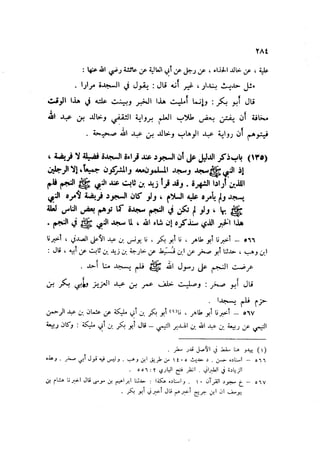 ٢٨٤
علية ، عن خالد الحذاء ، عن رجل عن أبي العالية عن عائشة رضي الله عنها :
مثل حديث بندار ، غير أنه قال : يقول في السجدة مرارا .
قال أبو بكر : وإنما أمليت هذا الخبر وبينت علته في هذا الوقت
مخافة أن يفتن بعض طلاب العلم برواية الثقفي وخالد بن عبد الله
فيتوهم أن رواية عبد الوهاب وخالد بن عبد الله صحيحة .
(١٣٥) باب ذكر الدليل على أن السجود عند قراءة السجدة فضيلة لا فريضة ،
إذ النبي ﷺ سجد وسجد المسلمون معه والمشركون جميعا ، إلا الرجلين
اللذين أرادا الشهرة . وقد قرأ زيد بن ثابت عند النبي ﷺ النجم فلم
يسجد ولم يأمره عليه السلام ، ولو كان السجود فريضة لأمره النبي
ﷺ بها ، ولو لم تكن في النجم سجدة كما توهم بعض الناس لعلة
هذا الخبر الذي سنذكره إن شاء الله ، لما سجد النبي ﷺ في النجم .
٥٦٦ – أخبرنا أبو طاهر ، نا أبو بكر ، نا يونس بن عبد الأعلى الصدفي ، أخبرنا
ابن وهب ، حدثنا أبو صخر عن ابن قسيط عن خارجة بن زيد بن ثابت عن أبيه ، قال :
عرضت النجم على رسول الله ﷺ فلم يسجد منا أحد .
قال أبو صخر : وصليت خلف عمر بن عبد العزيز وأبي بكر بن
حزم فلم يسجدا .
٥٦٧ – أخبرنا أبو طاهر ، نا (١) أبو بكر بن أبي مليكة عن عثمان بن عبد الرحمن
التيمي عن ربيعة بن عبد الله بن الهدير التيمي – قال أبو بكر بن أبي مليكة : وكان ربيعة
(١) يبدو هنا سقط في الأصل قدر سطر .
٥٦٦ – إسناده حسن . د حديث ١٤٠٥ من طريق ابن وهب . وليس فيه قول أبي صخر . وهذه
الزيادة في الطبراني . انظر فتح الباري ٢ : ٥٥٦ .
٥٦٧ – خ سجود القرآن ١٠ . وإسناده هكذا : حدثنا إبراهيم بن موسى قال أخبرنا هشام بن
يوسف أن ابن جريج أخبرهم قال أخبرني أبو بكر .